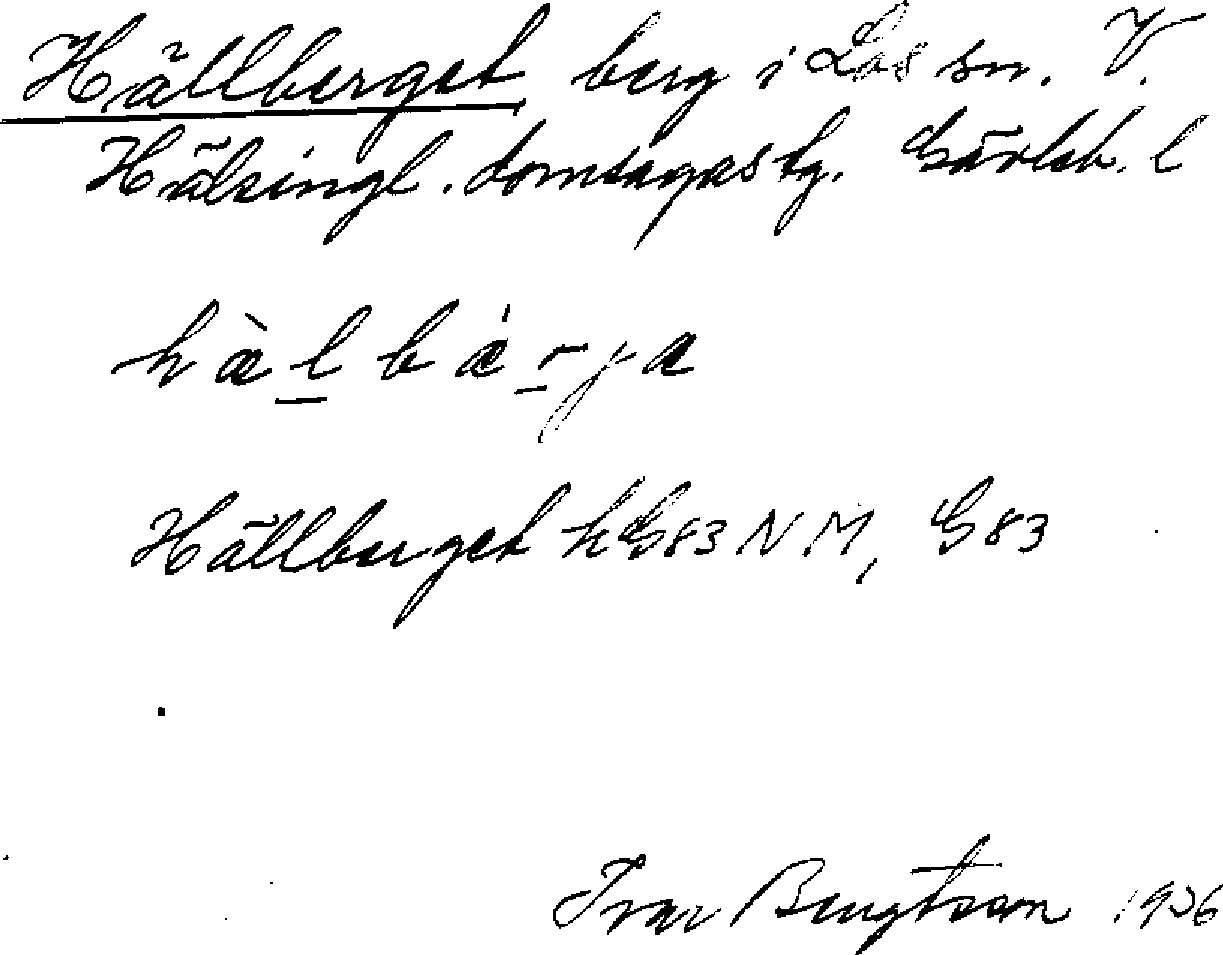 Hällberget, berg i Los sn. V.
Hälsingl. domsagas tg. Gävleb. l
hàlbárja
Hällberget hG83NM, G83
Ivar Bengtson 1926